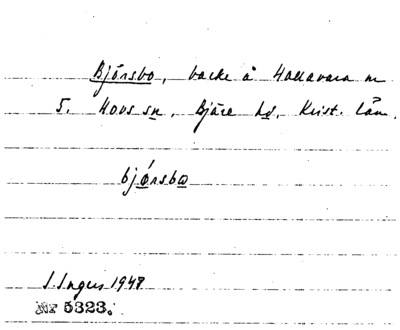 Björsbo, backe å Hallavara nr
5. Hovs sn, Bjäre hd, Krist. län.
bjǿrsbo
S. Ingers 1947
Nr 5323.